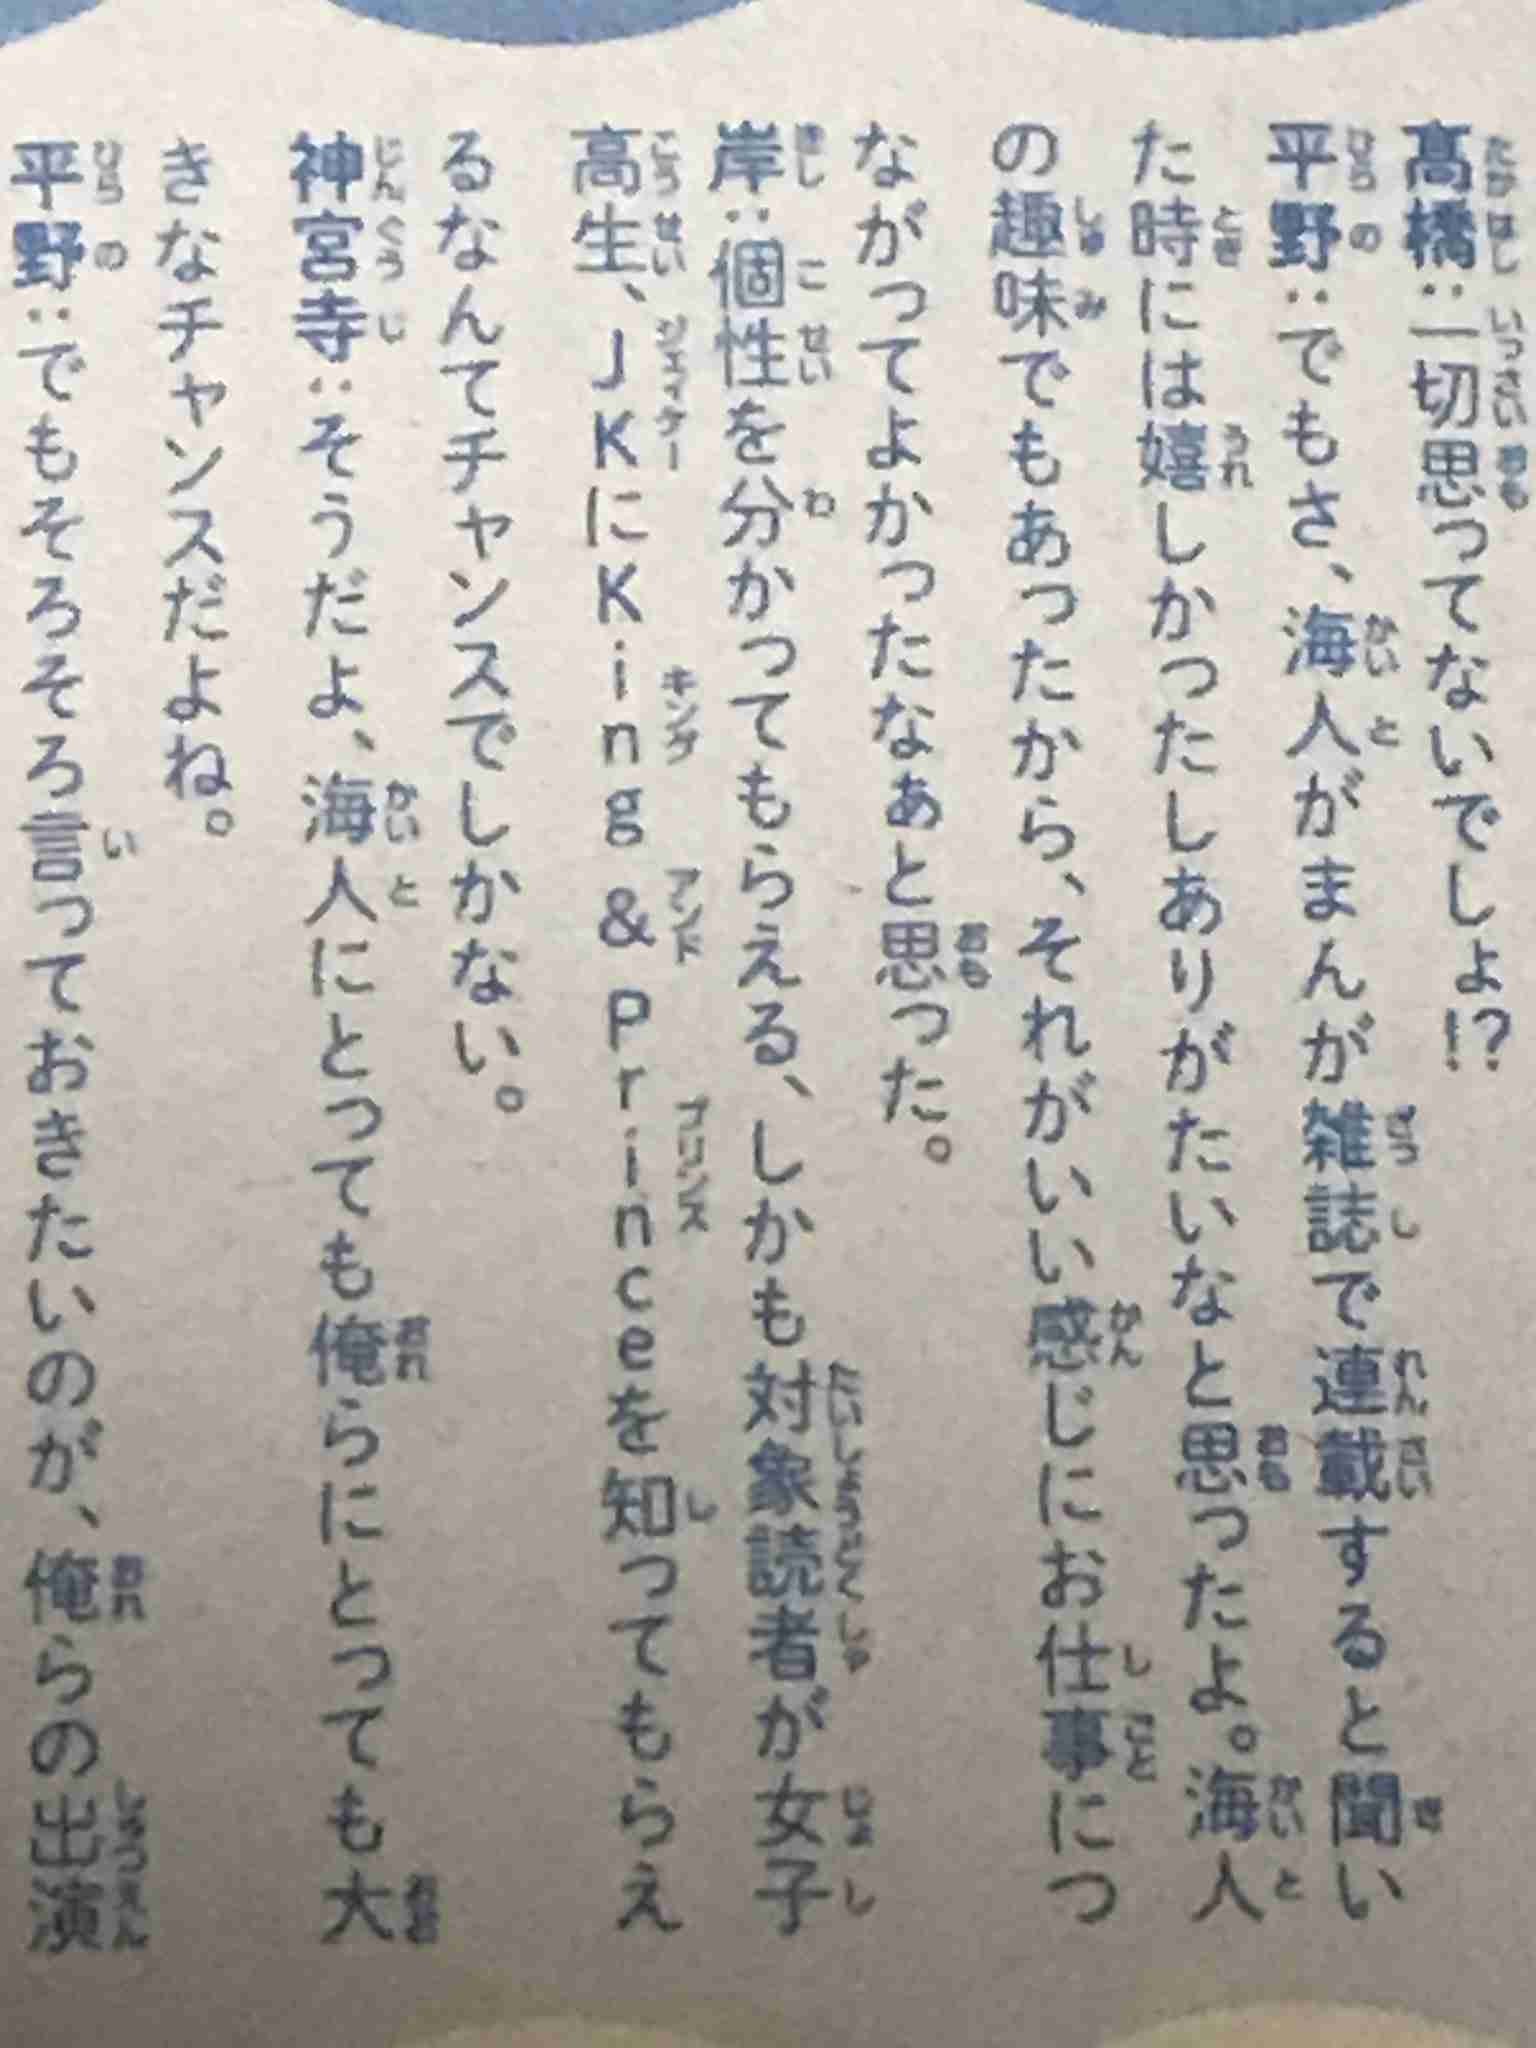 髙橋：一切思ってないでしょ!?
平野：でもさ、海人がまんが雑誌で連載すると聞い
た時には嬉しかったしありがたいなと思ったよ。海人
の趣味でもあったから、それがいい感じにお仕事につ
ながってよかったなぁと思った。
岸：個性を分かってもらえる、しかも対象読者が女子
高生、JKにKing & Princeを知ってもらえ
るなんてチャンスでしかない。
神宮寺：そうだよ、海人にとっても俺らにとっても大
きなチャンスだよね。
平野：でもそろそろ言っておきたいのが、俺らの出演